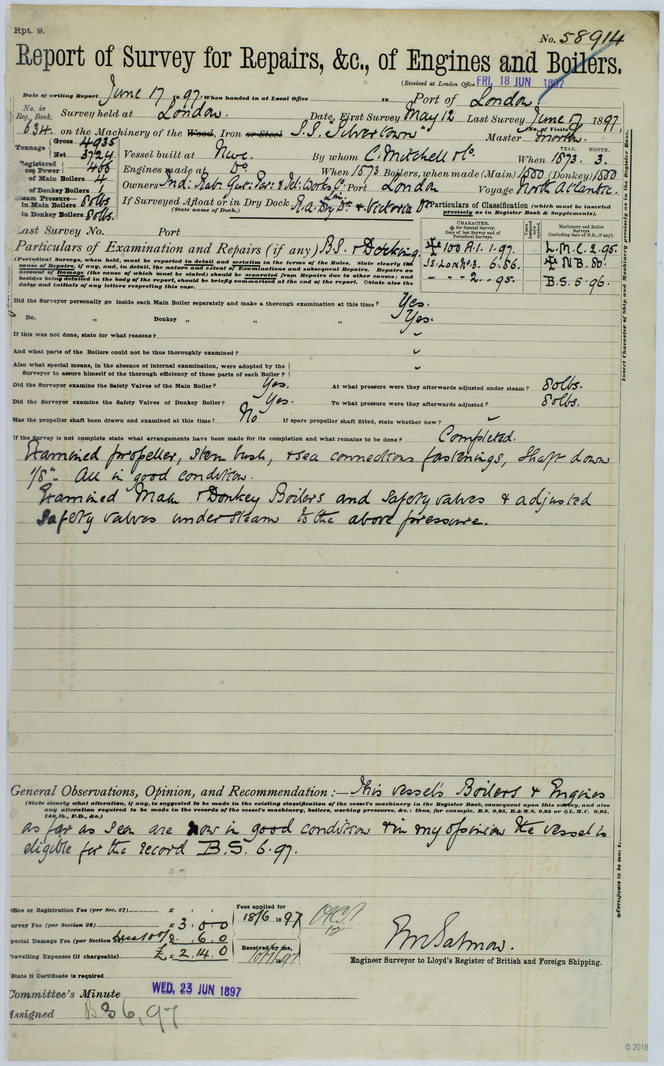 Rpt. 9.
No. 58914
Report of Survey for Repairs, &c., of Engines and Boilers.
(Received at London Office FRI. 18 JUN 1897
Date of writing Report June 17 1897. When handed in at Local Office 18 Port of London
No. in Reg. Book. Survey held at London. Date, First Survey May 12 Last Survey June 17 1897
634. on the Machinery of the Wood, Iron or Steel S.S. "Silvertown" Master Morton.
Tonnage Gross 4935 Net 3724
Vessel built at Nwc. By whom C. Mitchell & Co. When 1873. 3.
YEAR. MONTH.
Registered Horse Power 400
Engines made at Do. When 1873 Boilers, when made (Main) 1880 (Donkey) 1880
No. of Main Boilers 4
No. of Donkey Boilers 1
Owners Ind: Rub: Gut: Per: & Tel: Works Co. Lim: Port London Voyage North Atlantic.
Steam Pressure in Main Boilers 80lbs
in Donkey Boilers 80lbs.
If Surveyed Afloat or in Dry Dock Rd: Dry Dk. & Victoria Dk
(State name of Dock.)
Particulars of Classification (which must be inserted precisely as in Register Book & Supplements).
Last Survey No. Port
Particulars of Examination and Repairs (if any) B.S. & Docking.
(Periodical Surveys, when held, must be reported in detail and seriatim in the terms of the Rules. State clearly the cause of Repairs, if any, and, in detail, the nature and extent of Examinations and subsequent Repairs. Repairs on account of Damage (the cause of which must be stated) should be separated from Repairs due to other causes; and besides being detailed in the body of the report, should be briefly summarised at the end of the report. State also the dates and initials of any letters respecting this case.
CHARACTER.
for Special Survey.
Date of last Survey and of Periodical Surveys.
Machinery and Boiler Surveys (including date of N.B., if any).
✠ 100 A.1. 1.97. L.M.C. 2.95.
S.S. Lon. No 3. 6.86. ✠ N.B. 80.
" " " 2. 95. B.S. 5.96.
Insert Character of Ship and Machinery precisely as in the Register Book.
Did the Surveyor personally go inside each Main Boiler separately and make a thorough examination at this time? Yes.
Do. " Donkey " " " ? Yes.
If this was not done, state for what reasons?
And what parts of the Boilers could not be thus thoroughly examined?
Also what special means, in the absence of internal examination, were adopted by the Surveyor to assure himself of the thorough efficiency of those parts of each Boiler?
Did the Surveyor examine the Safety Valves of the Main Boiler? Yes. At what pressure were they afterwards adjusted under steam? 80lbs.
Did the Surveyor examine the Safety Valves of Donkey Boiler? Yes. To what pressure were they afterwards adjusted? 80lbs.
Has the propeller shaft been drawn and examined at this time? No If spare propeller shaft fitted, state whether new?
If the Survey is not complete state what arrangements have been made for its completion and what remains to be done? Completed.
Examined propeller, stern bush, & sea connections fastenings, Shaft down
1/8". All in good condition.
Examined Main & Donkey Boilers and Safety valves & adjusted
Safety valves under steam to the above pressure.
General Observations, Opinion, and Recommendation:— This vessel's Boilers & Engines
(State clearly what alteration, if any, is suggested to be made in the existing classification of the vessel's machinery in the Register Book, consequent upon this survey, and also any alteration required to be made in the records of the vessel's machinery, boilers, working pressures, &c.: thus, for example, B.S. 9,95, B.&M.S. 9,95 or ✠L.M.C. 9,95, 140 lb., F.D., &c.)
as far as seen are now in good condition & in my opinion the vessel is
eligible for the record B.S. 6.97.
Office or Registration Fee (per Sec. 27) £
Survey Fee (per Section 28) £ 3. 0. 0
Special Damage Fee (per Section
Travelling Expenses (if chargeable) £ 2. 14. 0
Fees applied for
18/6 1897
Received by me,
Engineer Surveyor to Lloyd's Register of British and Foreign Shipping.
State if Certificate is required
Committee's Minute WED. 23 JUN 1897
Assigned BS 6,97
© 2018